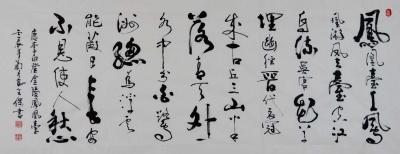 鳳凰臺上鳳
凰游鳳去臺空江
自流吳宮花草
埋幽徑晉代衣冠
成古丘三山半
落青天外
二水中分白鷺
洲總為浮雲
能蔽日長安
不見使人愁
李白登金陵鳳凰臺
壬辰年
書